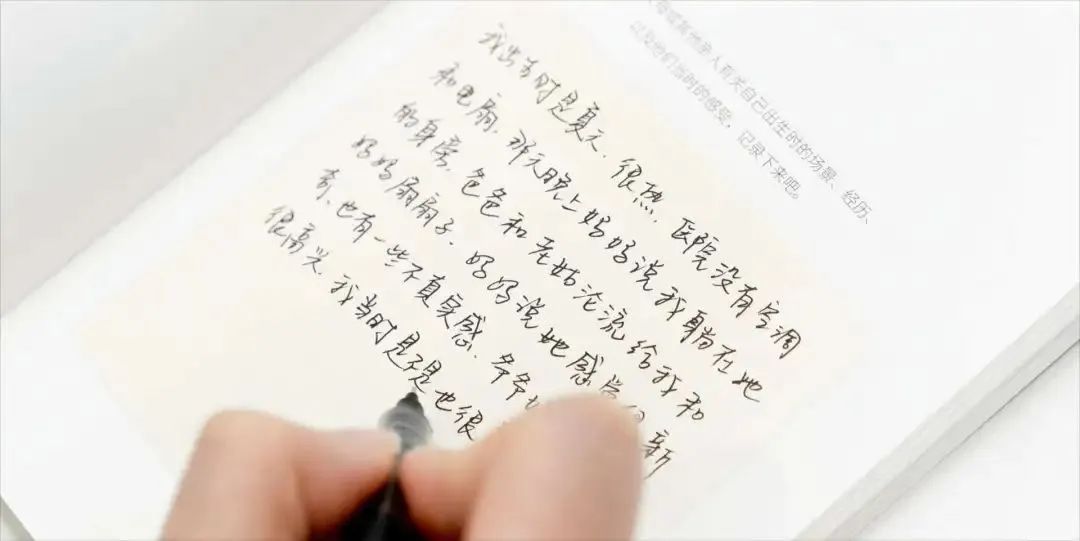 人或其他亲人有关自己出生时的场景、经历、
以及他们当时的感受，记录下来吧。
我出生时是夏天，很热，医院没有空调
和电扇，那天晚上妈妈说我躺在她
的身旁，爸爸和老姑轮流给我和
妈妈扇扇子，妈妈说她感觉很新
奇，也有一些不真实感，爷爷
很高兴，我当时是不是也很